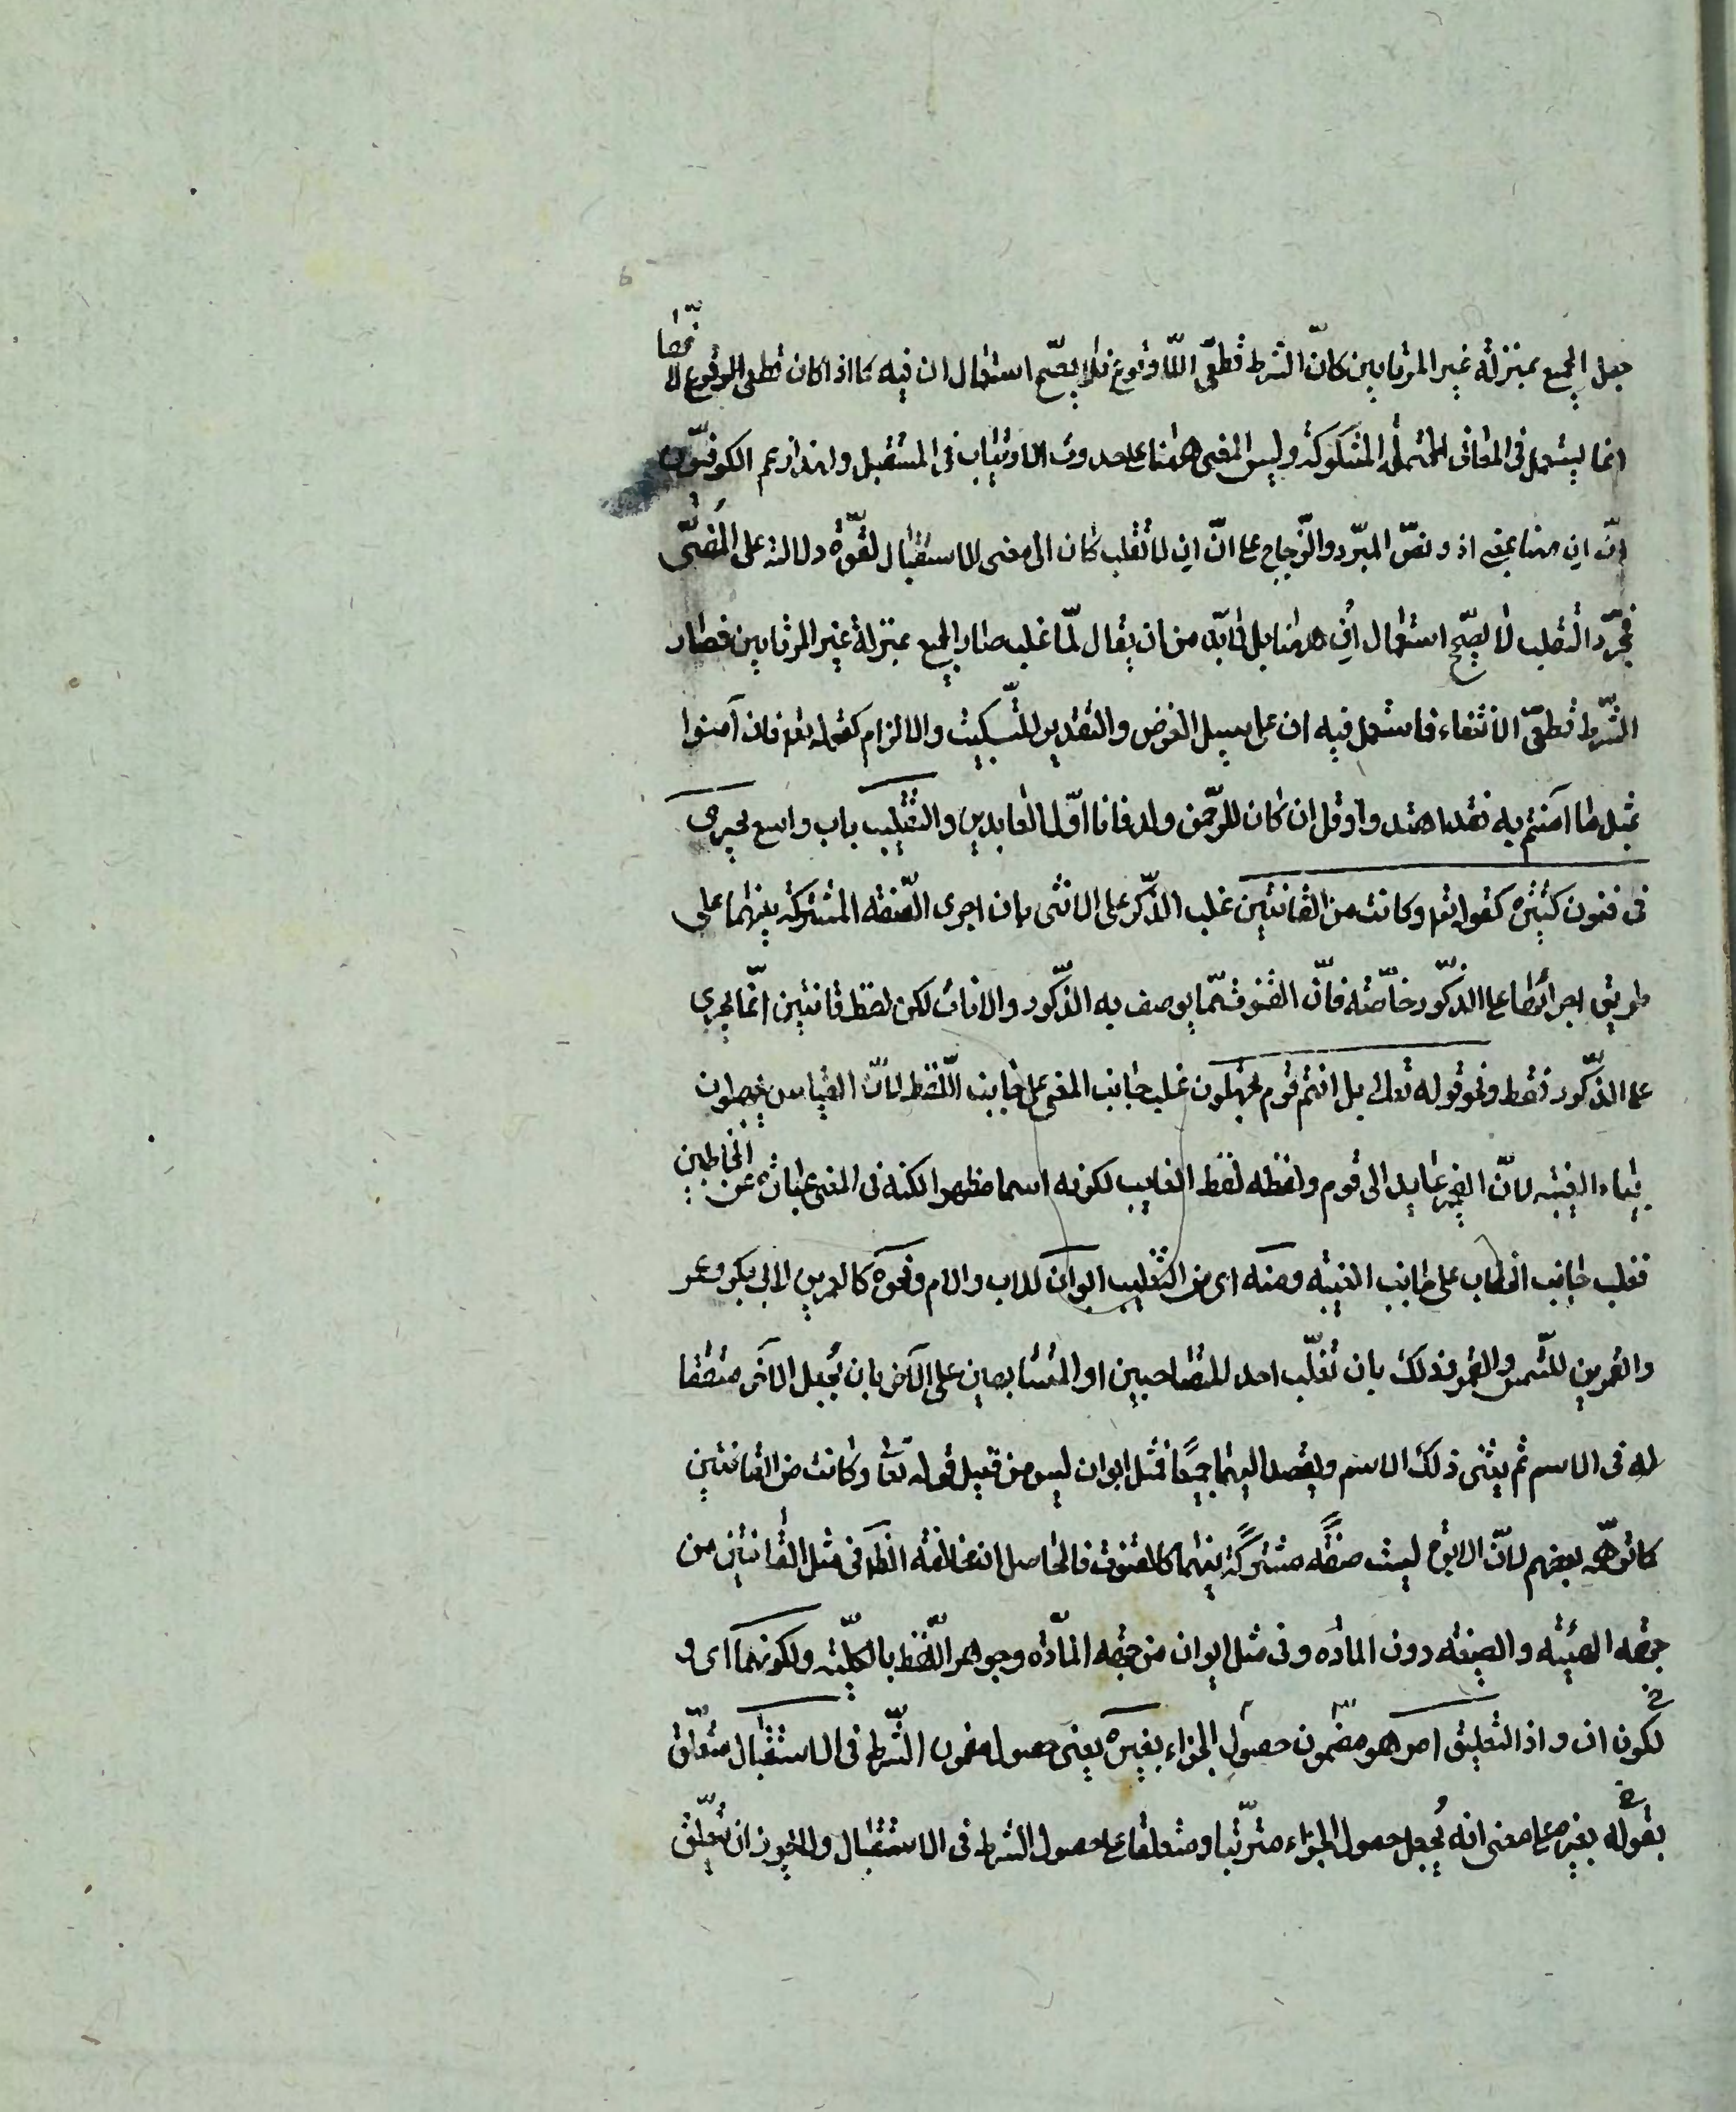 جعل الجميع بمنزلة غير المرتابين كان الشرط قطعى اللا وقوع فلا يصح استعمال ان فيه كما اذا كان قطعى الوقوع لانها
انما يستعمل فى المعانى المحتملة المشكوكة وليس المعنى ههنا على حدوث الارتياب فى المستقبل ولهذا زعم الكوفيون
ان ان ههنا بمعنى اذ ونص المبرد والزجاج على ان ان لا تقلب كان الى معنى الاستقبال لقوة دلالته على المضى
فمجرد التغليب لا يصحح استعمال ان ههنا بل لا بد من ان يقال لما غلب صار الجميع بمنزلة غير المرتابين فصار
الشرط قطعى الانتفاء فاستعمل فيه ان على سبيل الفرض والتقدير للتبكيت والالزام كقوله تع فان آمنوا
بمثل ما آمنتم به فقد اهتدوا وقل ان كان للرحمن ولد فانا اول العابدين والتغليب باب واسع يجرى
فى فنون كثيرة كقوله تع وكانت من القانتين غلب الذكر على الانثى بان اجرى الصفة المشتركة بينهما على
طريق اجرائها على الذكور خاصة فان القنوت مما يوصف به الذكور والاناث لكن لفظ قانتين انما يجرى
على الذكور فقط ونحو قوله تعالى بل انتم قوم تجهلون غلب جانب المعنى على جانب اللفظ لان القياس يجهلون
بياء الغيبة لان الضمير عايد الى قوم ولفظه لفظ الغايب لكونه اسما مظهرا لكنه فى المعنى عبارة عن المخاطبين
فغلب جانب الخطاب على جانب الغيبة ومنه اى من التغليب ابوان للاب والام ونحوه كالعمرين لابى بكر وعمر
والقمرين للشمس والقمر وذلك بان تغلب احد المتصاحبين او المتشابهين على الآخر بان يجعل الآخر متفقا
له فى الاسم ثم يثنى ذلك الاسم ويقصد اليهما جميعا فمثل ابوان ليس من قبيل قوله تعا وكانت من القانتين
كما توهمه بعضهم لان الابوة ليست صفة مشتركة بينهما كالقنوت فالحاصل ان مخالفة الظاهر فى مثل القانتين من
جهة الهيئة والصيغة دون المادة وفى مثل ابوان من جهة المادة وجوهر اللفظ بالكلية ولكونهما اى و
لكون ان واذا لتعليق امر هو مضمون حصول الجزاء بغيره يعنى حصول مضمون الشرط فى الاستقبال متعلق
بقوله بغيره على معنى انه يجعل حصول الجزاء مترتبا ومتعلقا على حصول الشرط فى الاستقبال ولا يجوز ان يتعلق